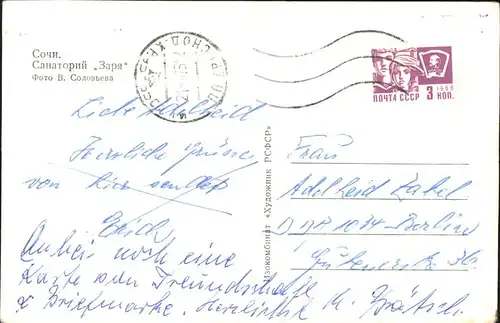 Сочи.
Санаторий „Заря"
Фото В. Соловьева
1966
ПОЧТА СССР 3 КОП.
Изокомбинат «Художник РСФСР»
Liebe Adelheid
Herzliche Grüsse
von hier sendet
Erich
Anbei noch eine
Karte zur Freundschaft
& Briefmarke. Herzlichst
Frau
Adelheid
DDR 1034 Berlin
36